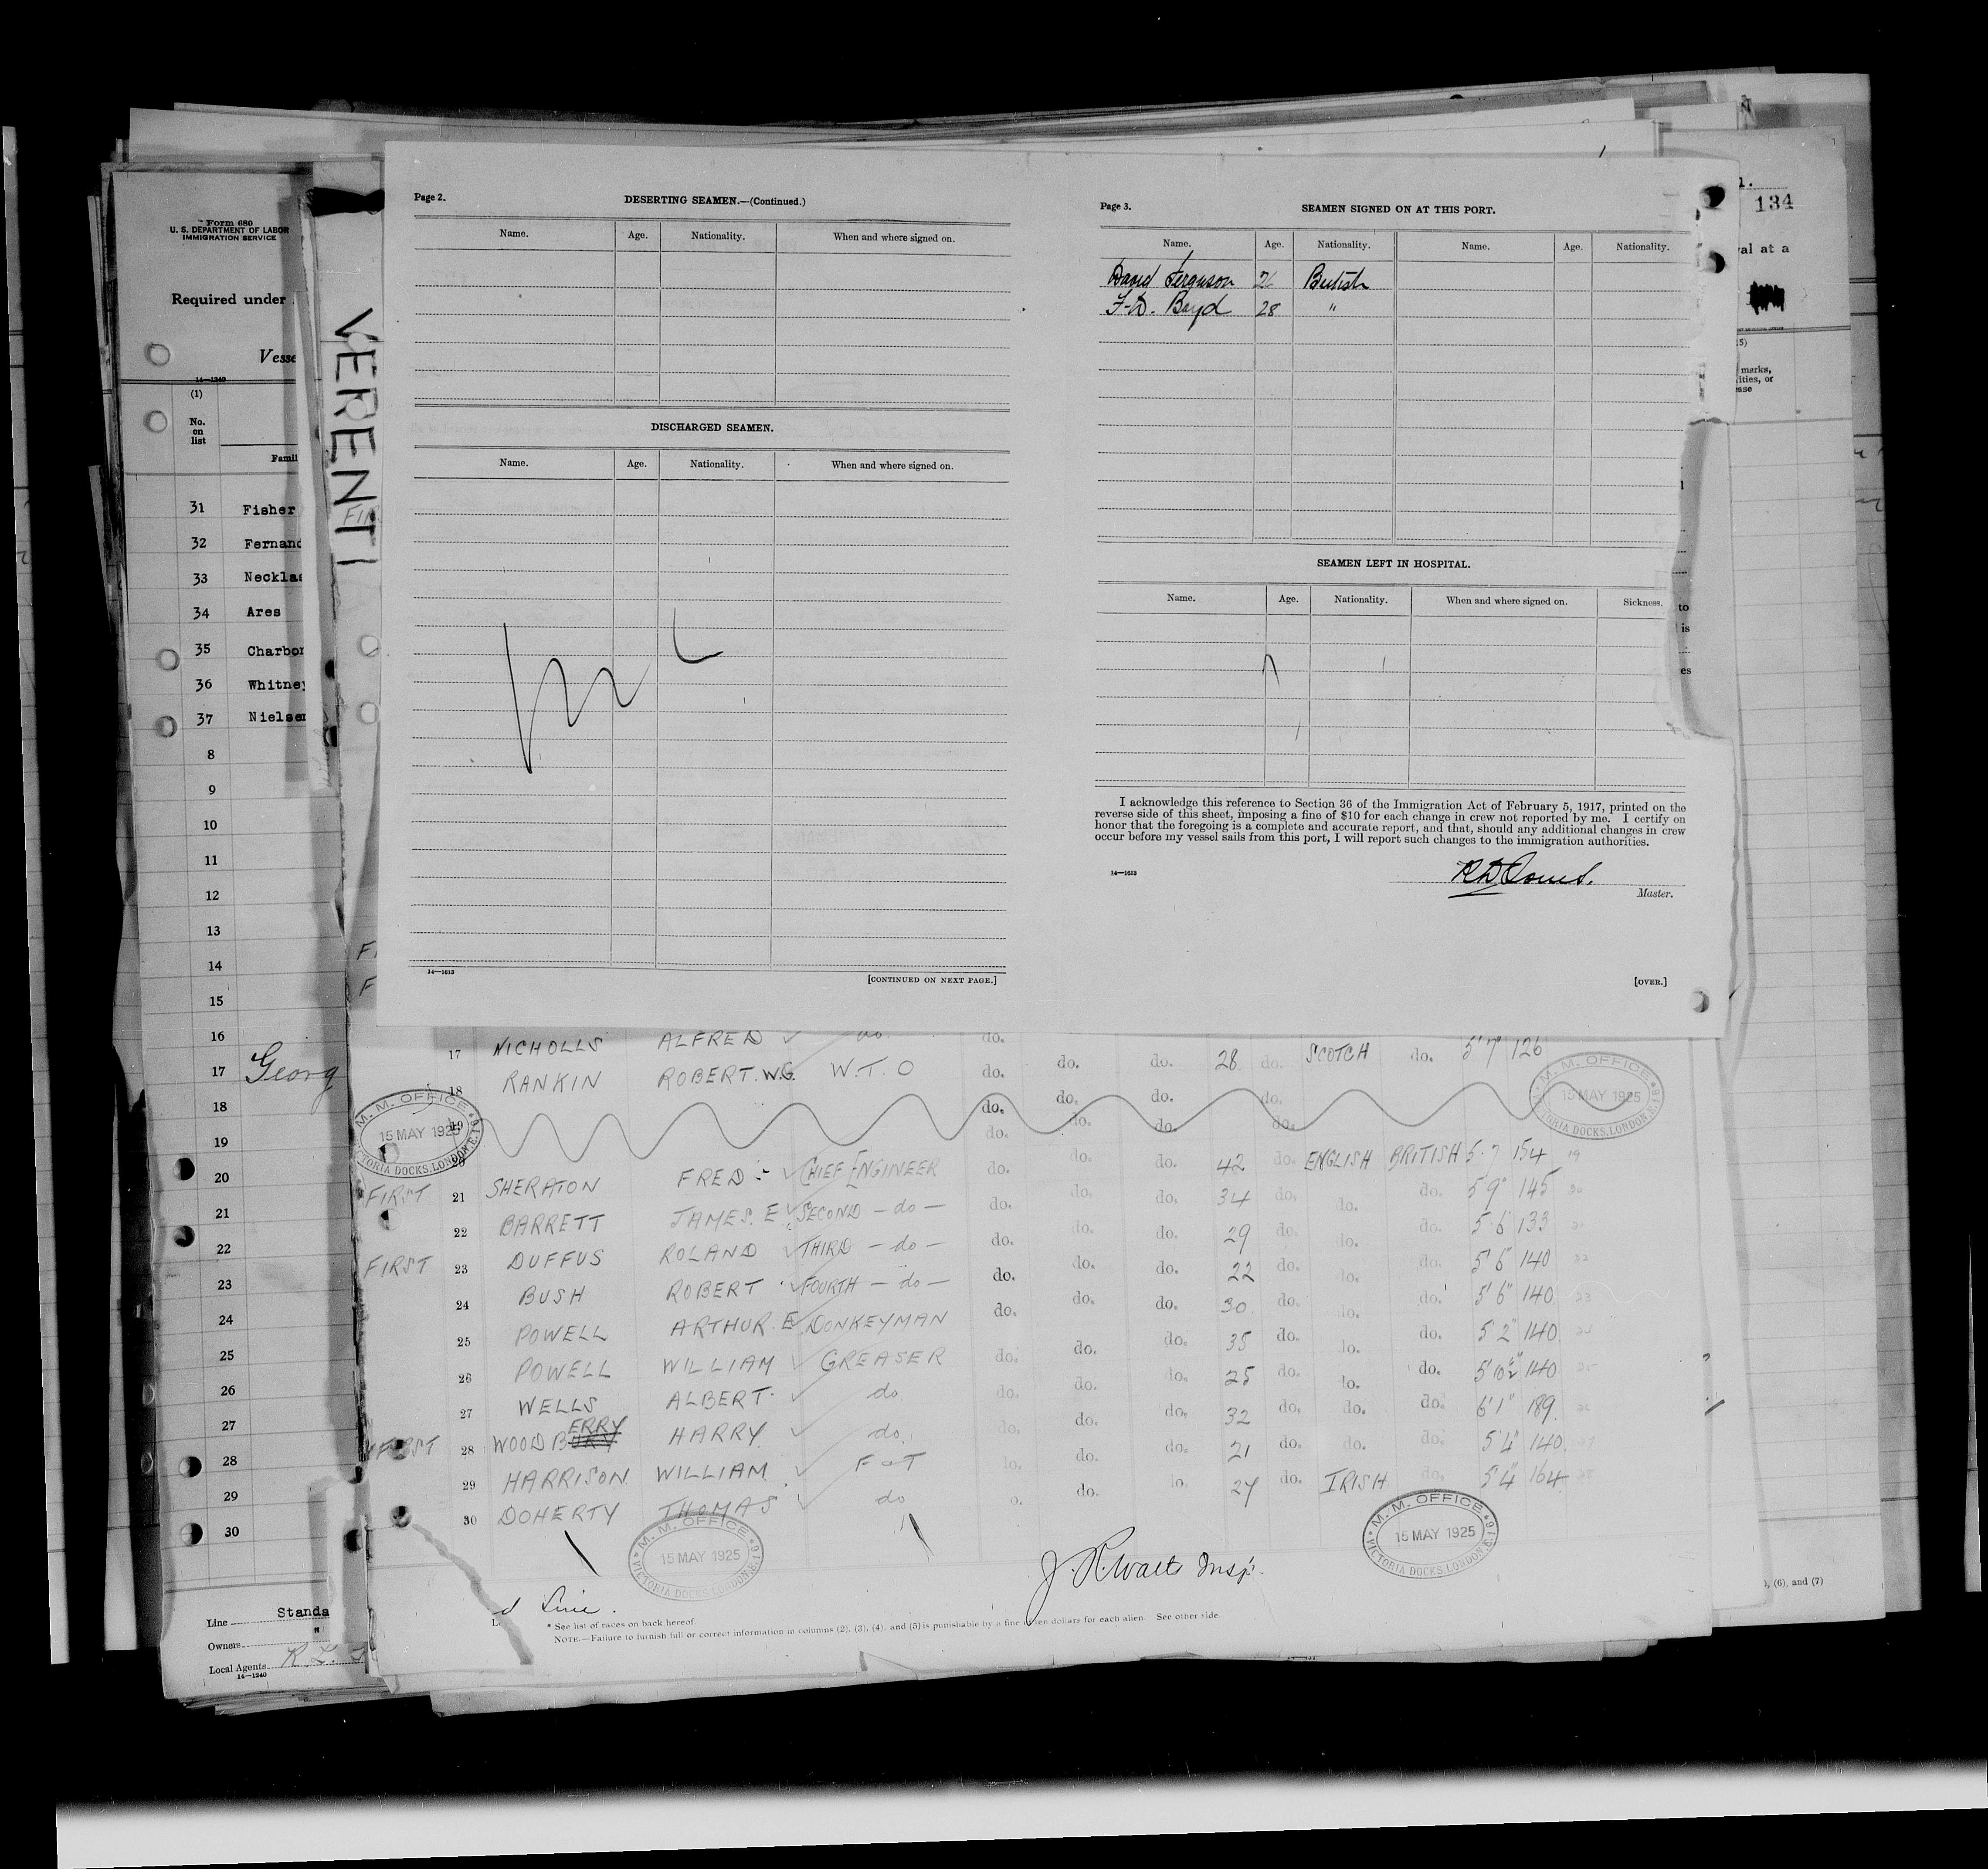 Form 680
U. S. DEPARTMENT OF LABOR
IMMIGRATION SERVICE
Required under
Vesse
14—1240
(1)
No.
on
list
Famil
31 Fisher
32 Fernand
33 Necklas
34 Ares
35 Charbon
36 Whitney
37 Nielsen
8
9
10
11
12
13
14
15
16
17 Georg
18
19
20
21
22
23
24
25
26
27
28
29
30
Line Standa
Owners "
Local Agents R. L.
14—1240
VERENTI
Page 2.
DESERTING SEAMEN.—(Continued.)
Name. Age. Nationality. When and where signed on.
DISCHARGED SEAMEN.
Name. Age. Nationality. When and where signed on.
14—1613
[CONTINUED ON NEXT PAGE.]
Page 3.
SEAMEN SIGNED ON AT THIS PORT.
Name. Age. Nationality. Name. Age. Nationality.
David Ferguson 26 British
F.D. Boyd 28 "
SEAMEN LEFT IN HOSPITAL.
Name. Age. Nationality. When and where signed on. Sickness.
I acknowledge this reference to Section 36 of the Immigration Act of February 5, 1917, printed on the
reverse side of this sheet, imposing a fine of $10 for each change in crew not reported by me. I certify on
honor that the foregoing is a complete and accurate report, and that, should any additional changes in crew
occur before my vessel sails from this port, I will report such changes to the immigration authorities.
14—1613
Master.
[OVER.]
1.
134
val at a
marks,
ities, or
ease
to
is
es
), (6), and (7)
17 NICHOLLS ALFRED do. do.
18 RANKIN ROBERT. W.G. W.T.O do. do. do. 28 do. SCOTCH do. 5'7 126
19 do. do. do. do.
20 do. do. do. do.
FIRST 21 SHERATON FRED CHIEF ENGINEER do. do. do. 42 do. ENGLISH BRITISH 5·7 154
22 BARRETT JAMES. E SECOND — do — do. do. do. 34 do. do. do. 5 9" 145
FIRST 23 DUFFUS ROLAND THIRD — do — do. do. do. 29 do. do. do. 5 6" 133
24 BUSH ROBERT FOURTH — do — do. do. do. 22 do. do. do. 5' 6" 140
25 POWELL ARTHUR. E DONKEYMAN do. do. do. 30 do. do. do. 5' 6" 140
26 POWELL WILLIAM GREASER do. do. do. 35 do. do. do. 5' 2" 140
27 WELLS ALBERT do do. do. do. 25 do. do. do. 5'10½" 140
FIRST 28 WOODBERRY HARRY. do. do. do. do. 32 do. do. do. 6'1" 189
29 HARRISON WILLIAM F&T do. do. do. 21 do. do. do. 5'4" 140
30 DOHERTY THOMAS do do. do. do. 24 do. IRISH do. 5'4" 164
M. M. OFFICE
15 MAY 1925
VICTORIA DOCKS, LONDON, E.16
M. M. OFFICE
15 MAY 1925
VICTORIA DOCKS, LONDON, E.16
M. M. OFFICE
15 MAY 1925
VICTORIA DOCKS, LONDON, E.16
M. M. OFFICE
15 MAY 1925
VICTORIA DOCKS, LONDON, E.16
d Line.
* See list of races on back hereof.
NOTE.—Failure to furnish full or correct information in columns (2), (3), (4), and (5) is punishable by a fine of ten dollars for each alien. See other side.